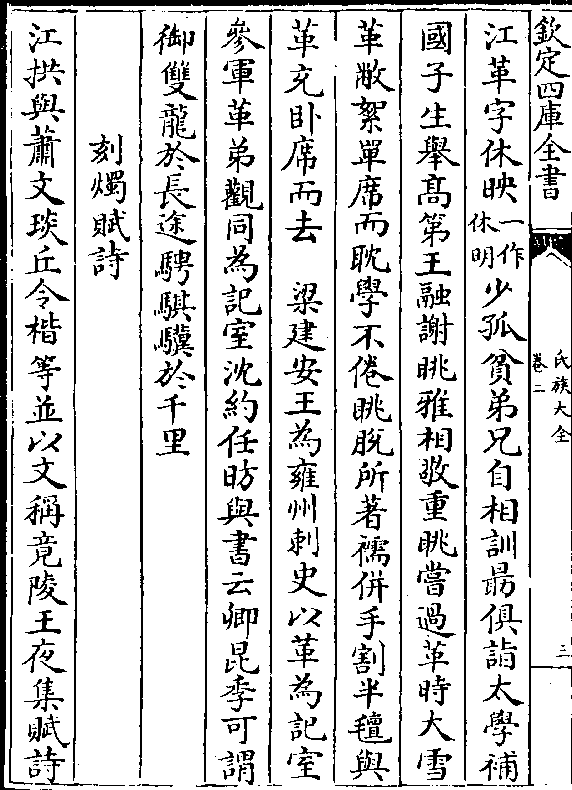 欽定四庫全書
氏族大全
卷二
三
江革字休映一作休明少孤貧弟兄自相訓勗俱詣太學補
國子生舉髙第王融謝眺雅相敬重眺嘗過革時大雪
革敝絮單席而耽學不倦眺脫所著襦併手割半氊與
革充卧席而去　梁建安王為雍州刺史以革為記室
參軍革弟觀同為記室沈約任昉與書云卿昆季可謂
御雙龍於長途騁騏驥於千里
刻燭賦詩
江拱與蕭文琰丘令楷等並以文稱竟陵王夜集賦詩